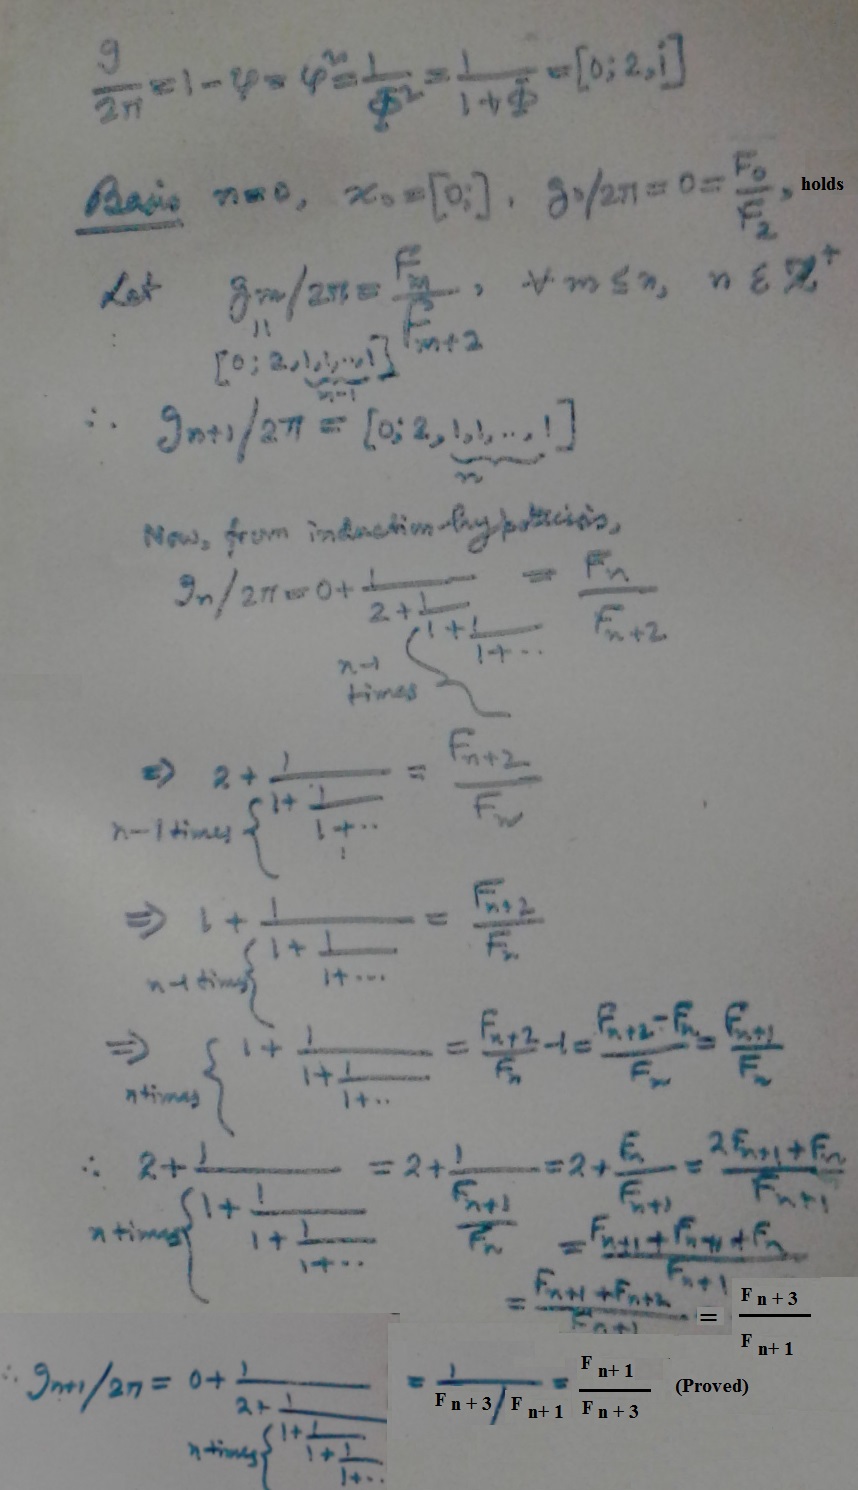 g/2π = 1 - φ = φ² = 1/Φ² = 1/(1+Φ) = [0; 2, 1̇]
Basis n=0, x₀ = [0;], g₀/2π = 0 = F₀/F₂, holds
Let gₘ/2π = Fₘ/Fₘ₊₂, ∀ m ≤ n, n ε ℤ⁺
||
[0; 2, 1, 1, ..., 1]
n-1
∴ gₙ₊₁/2π = [0; 2, 1, 1, ..., 1]
n
Now, from induction hypothesis,
gₙ/2π = 0 + 1/(2 + 1/(1 + 1/(1 + ...))) = Fₙ/Fₙ₊₂
n-1
times
⇒ 2 + 1/(1 + 1/(1 + ...)) = Fₙ₊₂/Fₙ
n-1 times
⇒ 1 + 1/(1 + 1/(1 + ...)) = Fₙ₊₂/Fₙ
n-1 times
⇒ 1 + 1/(1 + 1/(1 + ..)) = Fₙ₊₂/Fₙ - 1 = (Fₙ₊₂ - Fₙ)/Fₙ = Fₙ₊₁/Fₙ
n times
∴ 2 + 1/(1 + 1/(1 + 1/(1 + ...))) = 2 + 1/(Fₙ₊₁/Fₙ) = 2 + Fₙ/Fₙ₊₁ = (2Fₙ₊₁ + Fₙ)/Fₙ₊₁
n times
= (Fₙ₊₁ + Fₙ₊₁ + Fₙ)/Fₙ₊₁
= (Fₙ₊₁ + Fₙ₊₂)/Fₙ₊₁ = F n + 3 / F n+ 1
∴ gₙ₊₁/2π = 0 + 1/(2 + 1/(1 + 1/(1 + 1/(1 + ...)))) = 1/(F n + 3 / F n+ 1) = F n+ 1 / F n + 3 (Proved)
n times